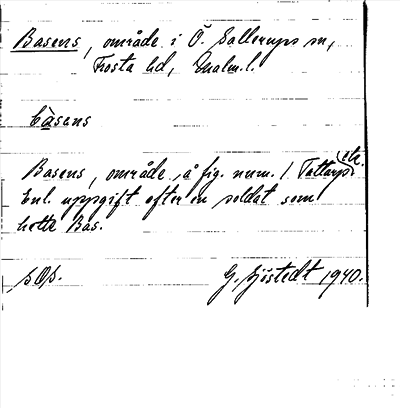 Basens, område i Ö. Sallerups sn,
Frosta hd, Malm.l.
bàsens
Basens, område å fig. num. 1 Tattarp etc.
Enl. uppgift efter en soldat som
hette Bas.
sOp.
G. Sjöstedt 1940.